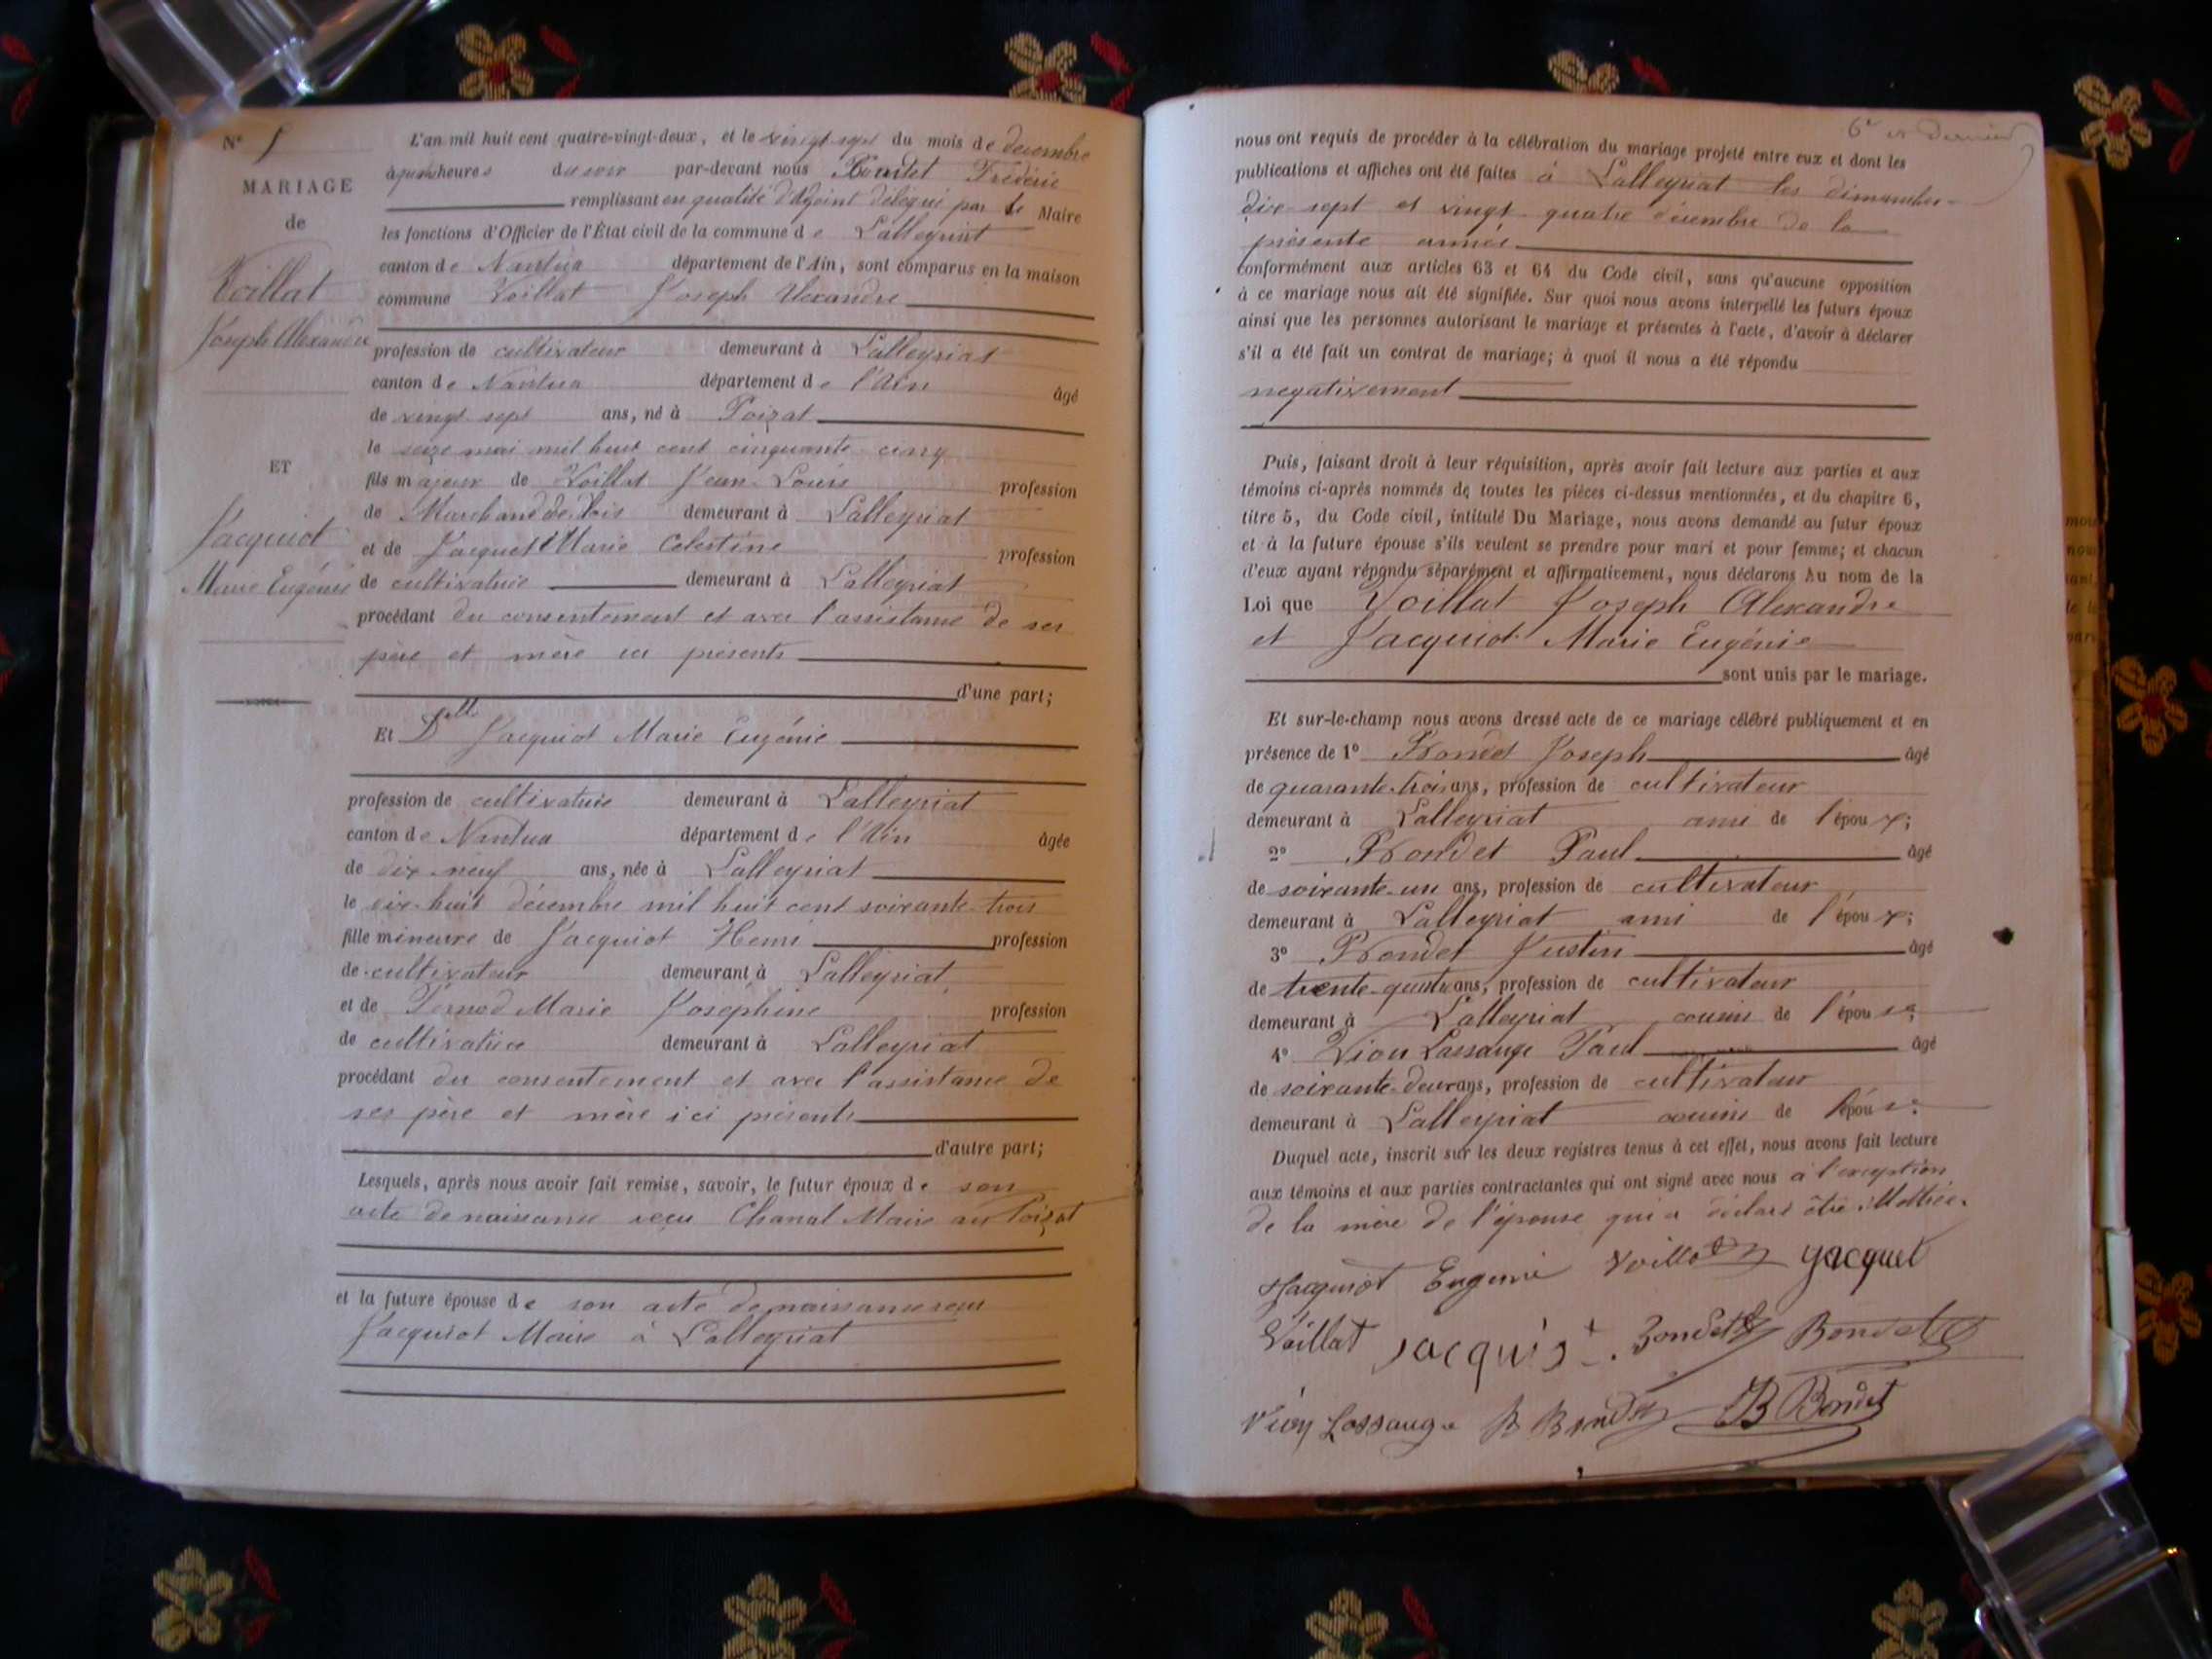 N° 5
MARIAGE
de
Voillat
Joseph Alexandre
ET
Jacquiot
Marie Eugénie
L'an mil huit cent quatre-vingt-deux, et le vingt sept du mois de decembre
à heures du soir par-devant nous Frédéric
remplissant en qualité d'Adjoint délégué par le Maire
les fonctions d'Officier de l'État civil de la commune de Lalleyriat
canton de Nantua département de l'Ain, sont comparus en la maison
commune Voillat Joseph Alexandre
profession de cultivateur demeurant à Lalleyriat
canton de Nantua département de l'Ain âgé
de vingt sept ans, né à Poizat
le seize mai mil huit cent cinquante cinq
fils majeur de Voillat Jean-Louis profession
de Marchand de bois demeurant à Lalleyriat
et de Jacquet Marie Celestine profession
de cultivatrice demeurant à Lalleyriat
procédant du consentement et avec l'assistance de ses
père et mère ici présents
d'une part;
Et Dlle Jacquiot Marie Eugénie
profession de cultivatrice demeurant à Lalleyriat
canton de Nantua département de l'Ain âgée
de dix neuf ans, née à Lalleyriat
le dix-huit décembre mil huit cent soixante-trois
fille mineure de Jacquiot Henri profession
de cultivateur demeurant à Lalleyriat
et de Pernod Marie Joséphine profession
de cultivatrice demeurant à Lalleyriat
procédant du consentement et avec l'assistance de
ses père et mère ici présents
d'autre part;
Lesquels, après nous avoir fait remise, savoir, le futur époux de son
acte de naissance reçu Chanal Maire au Poizat
et la future épouse de son acte de naissance reçu
Jacquiot Maire à Lalleyriat
6e et dernier
nous ont requis de procéder à la célébration du mariage projeté entre eux et dont les
publications et affiches ont été faites à Lalleyriat les dimanches
dix-sept et vingt-quatre décembre de la
présente année
conformément aux articles 63 et 64 du Code civil, sans qu'aucune opposition
à ce mariage nous ait été signifiée. Sur quoi nous avons interpellé les futurs époux
ainsi que les personnes autorisant le mariage et présentes à l'acte, d'avoir à déclarer
s'il a été fait un contrat de mariage; à quoi il nous a été répondu
negativement
Puis, faisant droit à leur réquisition, après avoir fait lecture aux parties et aux
témoins ci-après nommés de toutes les pièces ci-dessus mentionnées, et du chapitre 6,
titre 5, du Code civil, intitulé Du Mariage, nous avons demandé au futur époux
et à la future épouse s'ils veulent se prendre pour mari et pour femme; et chacun
d'eux ayant répondu séparément et affirmativement, nous déclarons au nom de la
Loi que Voillat Joseph Alexandre
et Jacquiot Marie Eugénie
sont unis par le mariage.
Et sur-le-champ nous avons dressé acte de ce mariage célébré publiquement et en
présence de 1° Bondet Joseph âgé
de quarante-trois ans, profession de cultivateur
demeurant à Lalleyriat ami de l'époux;
2° Bondet Paul âgé
de soixante-un ans, profession de cultivateur
demeurant à Lalleyriat ami de l'époux;
3° Bondet Justin âgé
de trente-quatre ans, profession de cultivateur
demeurant à Lalleyriat cousin de l'épouse;
4° Vion Lassauge Paul âgé
de soixante-deux ans, profession de cultivateur
demeurant à Lalleyriat cousin de l'épouse.
Duquel acte, inscrit sur les deux registres tenus à cet effet, nous avons fait lecture
aux témoins et aux parties contractantes qui ont signé avec nous à l'exception
de la mère de l'épouse qui a déclaré être illettrée.
Jacquiot Eugenie Voillat Jacquet
Voillat Jacquiot Bondet Bondet
Vion Lassauge B Bondet B Bondet